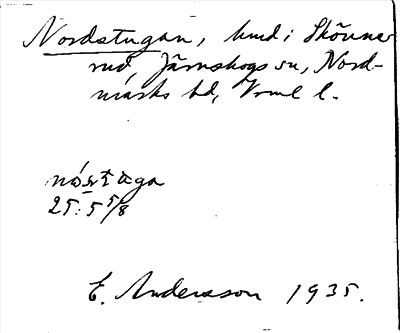 Nordstugan, hmd i Skönne-
rud, Järnskogs sn, Nord-
marks hd, Vrml l.
25: 5 5/8
E. Andersson 1935.